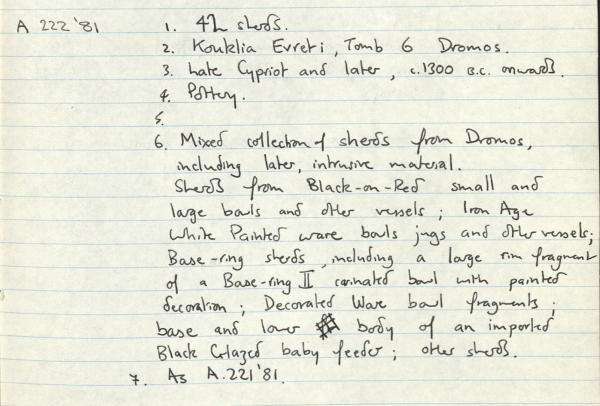 A 222 '81 1. 42 sherds.
2. Kouklia Evreti, Tomb 6 Dromos.
3. Late Cypriot and later, c.1300 B.C. onwards.
4. Pottery.
5.
6. Mixed collection of sherds from Dromos,
including later, intrusive material.
Sherds from Black-on-Red small and
large bowls and other vessels; Iron Age
White Painted ware bowls jugs and other vessels;
Base-ring sherds, including a large rim fragment
of a Base-ring II carinated bowl with painted
decoration; Decorated Ware bowl fragments;
base and lower body of an imported
Black Glazed baby feeder; other sherds.
7. As A.221 '81.